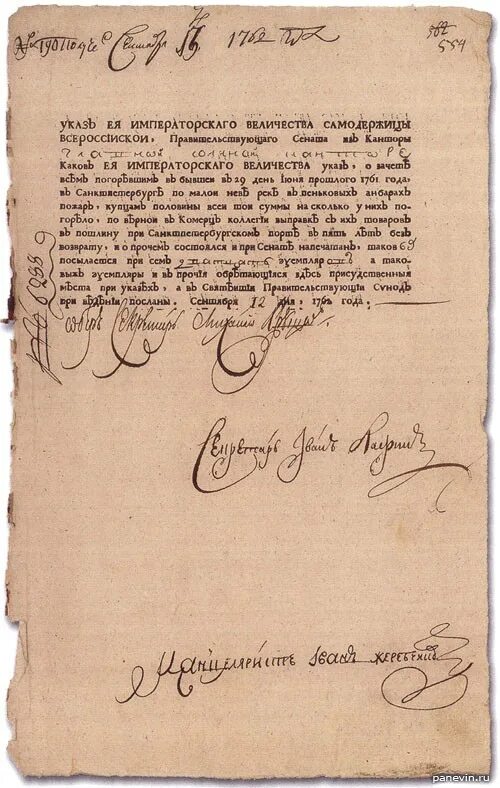 Сентября 16 1762
562
554
УКАЗЪ ЕЯ ИМПЕРАТОРСКАГО ВЕЛИЧЕСТВА САМОДЕРЖИЦЫ
ВСЕРОССІИСКОИ, Правительствующаго Сената изъ Канторы
главнои соляной канторѣ
Каковъ ЕЯ ИМПЕРАТОРСКАГО ВЕЛИЧЕСТВА указъ, о зачетѣ
всѣмъ погорѣвшимъ въ бывшеи въ 29 день Іюня прошлого 1761 года,
въ Санктпетербургѣ по малои невѣ рекѣ въ пеньковыхъ анбарахъ
пожаръ, купцамъ половины всеи тои суммы на сколько у нихъ по-
горело, по вѣрнои въ Комерцъ коллегіи выправке съ ихъ товаровъ
въ пошлину при Санктпетербургскомъ портѣ въ пять лѣтъ безъ
возврату, и о прочемъ состоялся и при Сенатѣ напечатанъ, таковъ
посылается при семъ экземпляръ а тако-
выхъ экземпляры и въ прочія обрѣтающіяся здѣсь присудственныя
мѣста при указѣхъ, а въ Святѣишіи Правительствующіи Сунодъ
при вѣдѣніи посланы. Сентября 12 дня, 1762 года.
6288
Секретарь
Секретарь Іванъ
Канцеляристъ Іванъ Жеребцовъ
panevin.ru